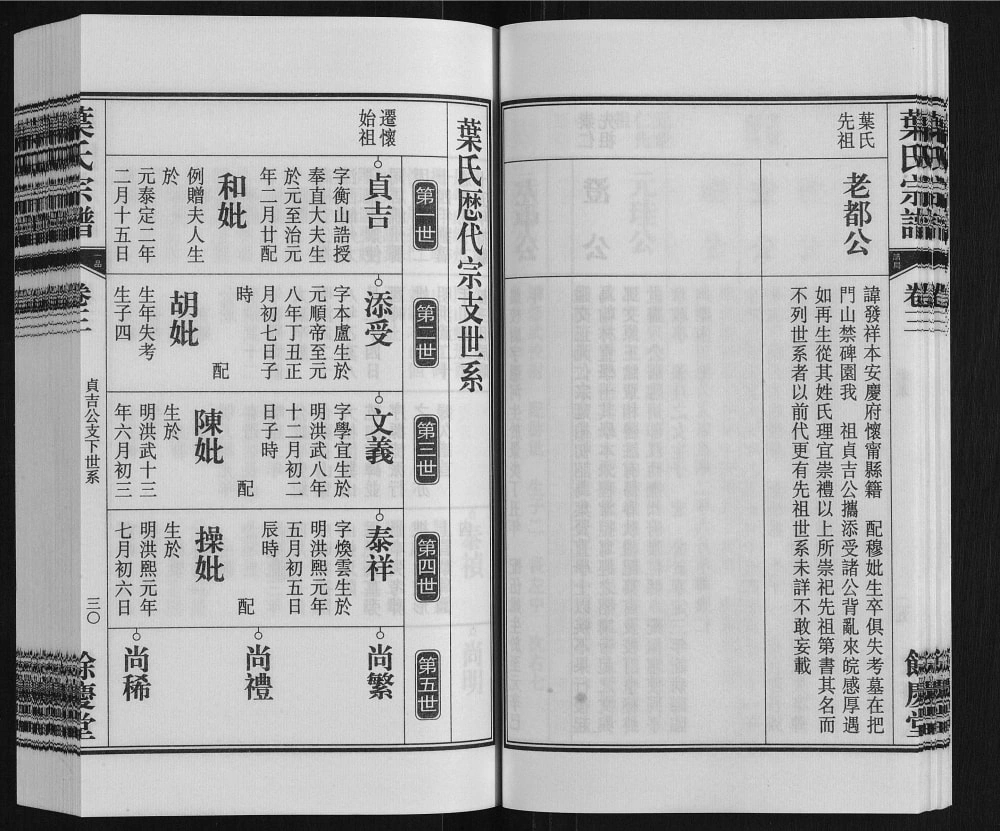 葉氏宗譜
卷三
餘慶堂
葉氏
先祖
老都公
諱發祥本安慶府懷甯縣籍　配穆妣生卒俱失考墓在把
門山禁碑園我　祖貞吉公攜添受諸公背亂來皖感厚遇
如再生從其姓氏理宜崇禮以上所崇祀先祖第書其名而
不列世系者以前代更有先祖世系未詳不敢妄載
葉氏歷代宗支世系
第一世
第二世
第三世
第四世
第五世
遷懷
始祖
貞吉
字衡山誥授
奉直大夫生
於元至治元
年二月廿配
和妣
例贈夫人生
於
元泰定二年
二月十五日
添受
字本盧生於
元順帝至元
八年丁丑正
月初七日子
時　配
胡妣
生年失考
生子四
文義
字學宜生於
明洪武八年
十二月初二
日子時
配
陳妣
生於
明洪武十三
年六月初三
泰祥
字煥雲生於
明洪熙元年
五月初五日
辰時
配
操妣
生於
明洪熙元年
七月初六日
尚繁
尚禮
尚稀
葉氏宗譜
卷三
貞吉公支下世系
三〇
餘慶堂